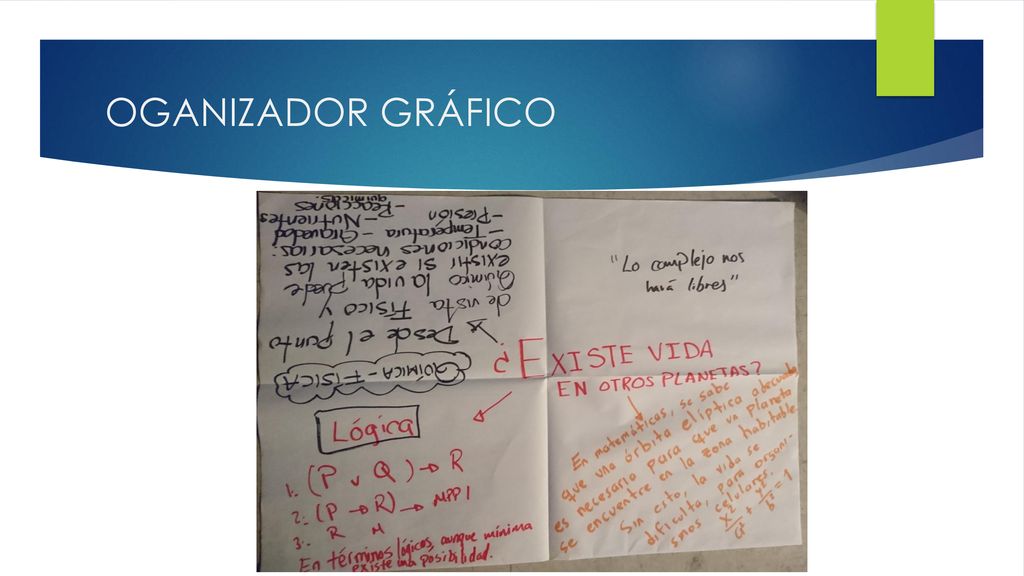 OGANIZADOR GRÁFICO
"Lo complejo nos
hará libres"
¿EXISTE VIDA
EN OTROS PLANETAS?
QUÍMICA - FÍSICA
Desde el punto
de vista Físico y
Químico la vida puede
existir si existen las
condiciones necesarias:
- Temperatura - Gravedad
- Presión - Nutrientes
- Reacciones
químicas.
Lógica
1. (P v Q) → R
2. (P → R) → MPP1
3.- R
En términos lógicos, aunque mínima
existe una posibilidad.
En matemáticas, se sabe
que una órbita elíptica adecuada
es necesario para que un planeta
se encuentre en la zona habitable.
Sin esto, la vida se
dificulta, para organi-
smos celulares.
x²/a² + y²/b² = 1